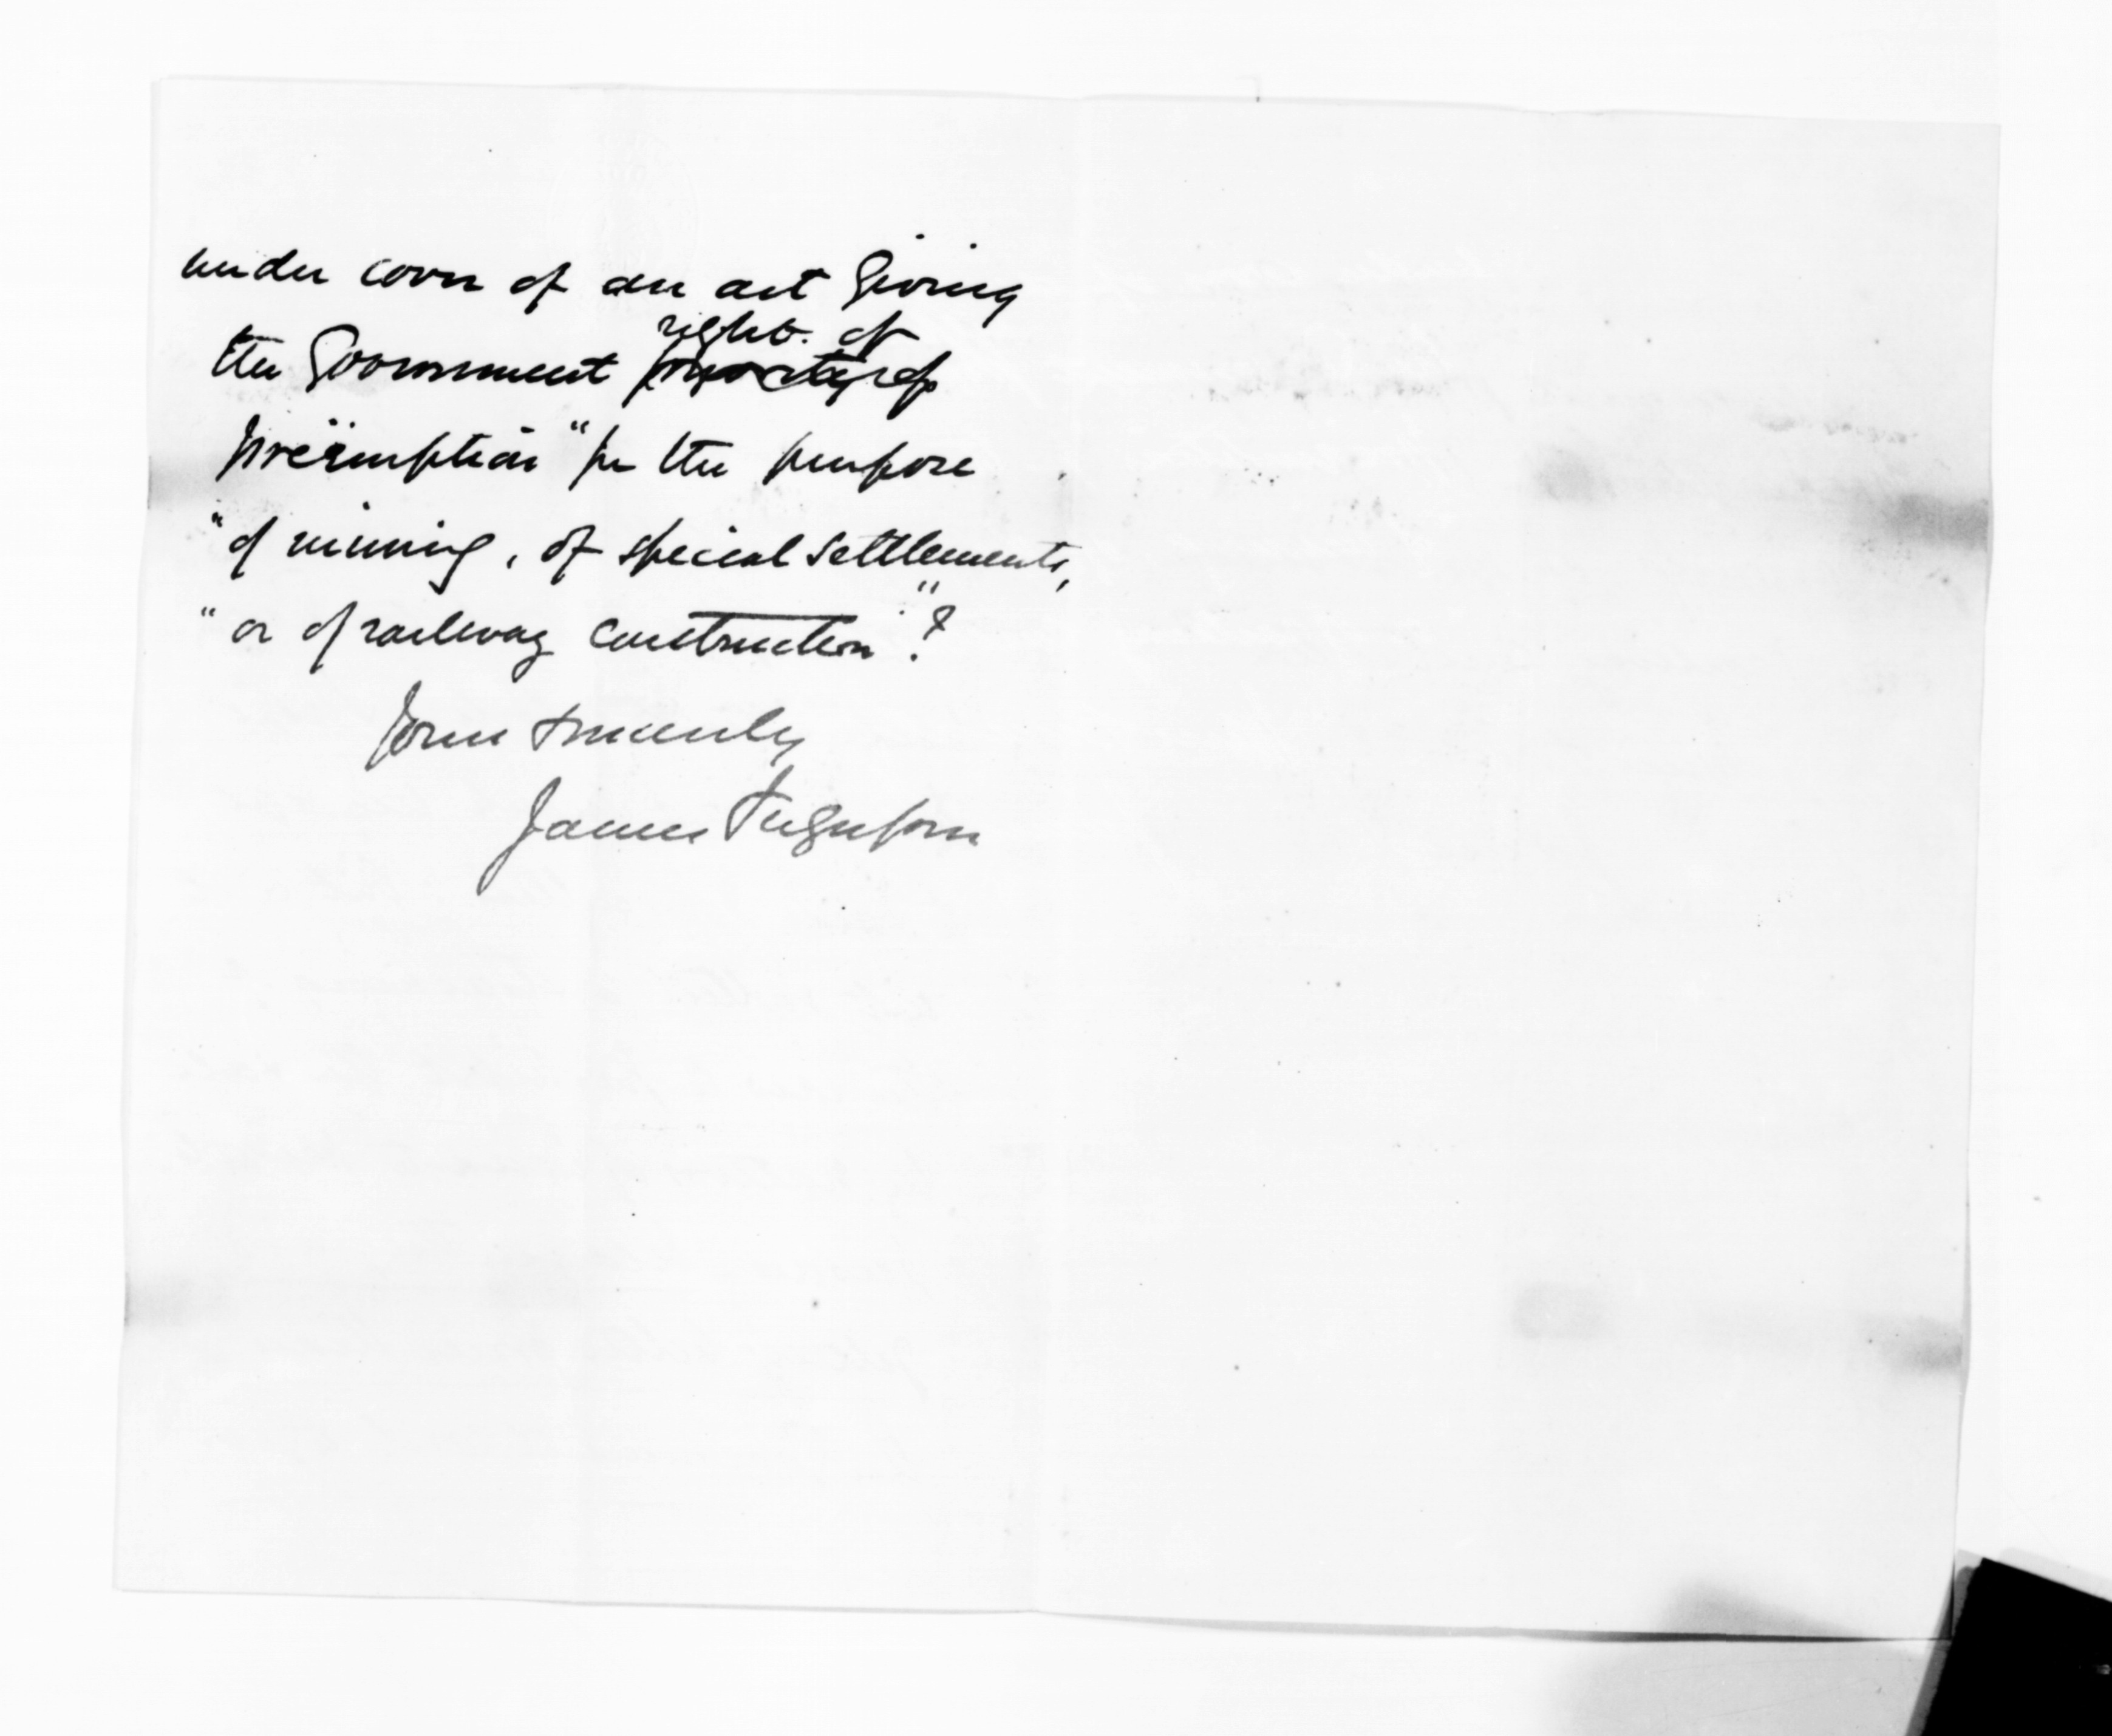 under cover of an act giving
the Government right of
preëmption "for the purpose
"of mining, of special settlements,
"or of railway construction"?
Yours sincerely
James Fergusson